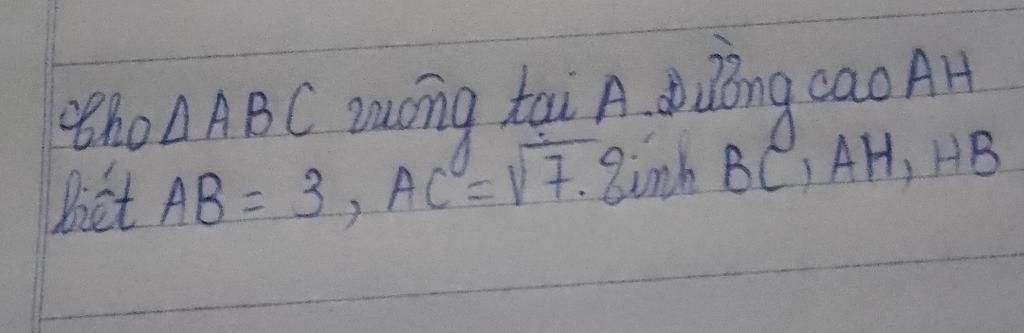 Cho Δ ABC vuông tại A. Đường cao AH
biết AB = 3, AC = √7. Tính BC, AH, HB